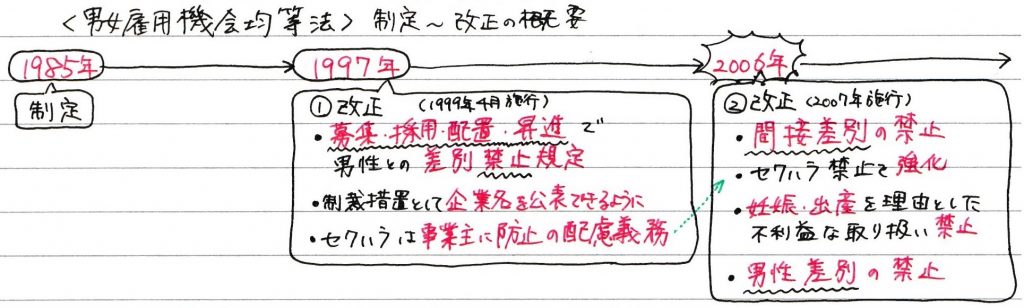 〈男女雇用機会均等法〉 制定～改正の概要
1985年
制定
1997年
① 改正 (1999年4月施行)
・募集・採用・配置・昇進で
男性との差別禁止規定
・制裁措置として企業名を公表できるように
・セクハラは事業主に防止の配慮義務
2006年
② 改正 (2007年施行)
・間接差別の禁止
・セクハラ禁止で強化
・妊娠・出産を理由とした
不利益な取り扱い禁止
・男性差別の禁止